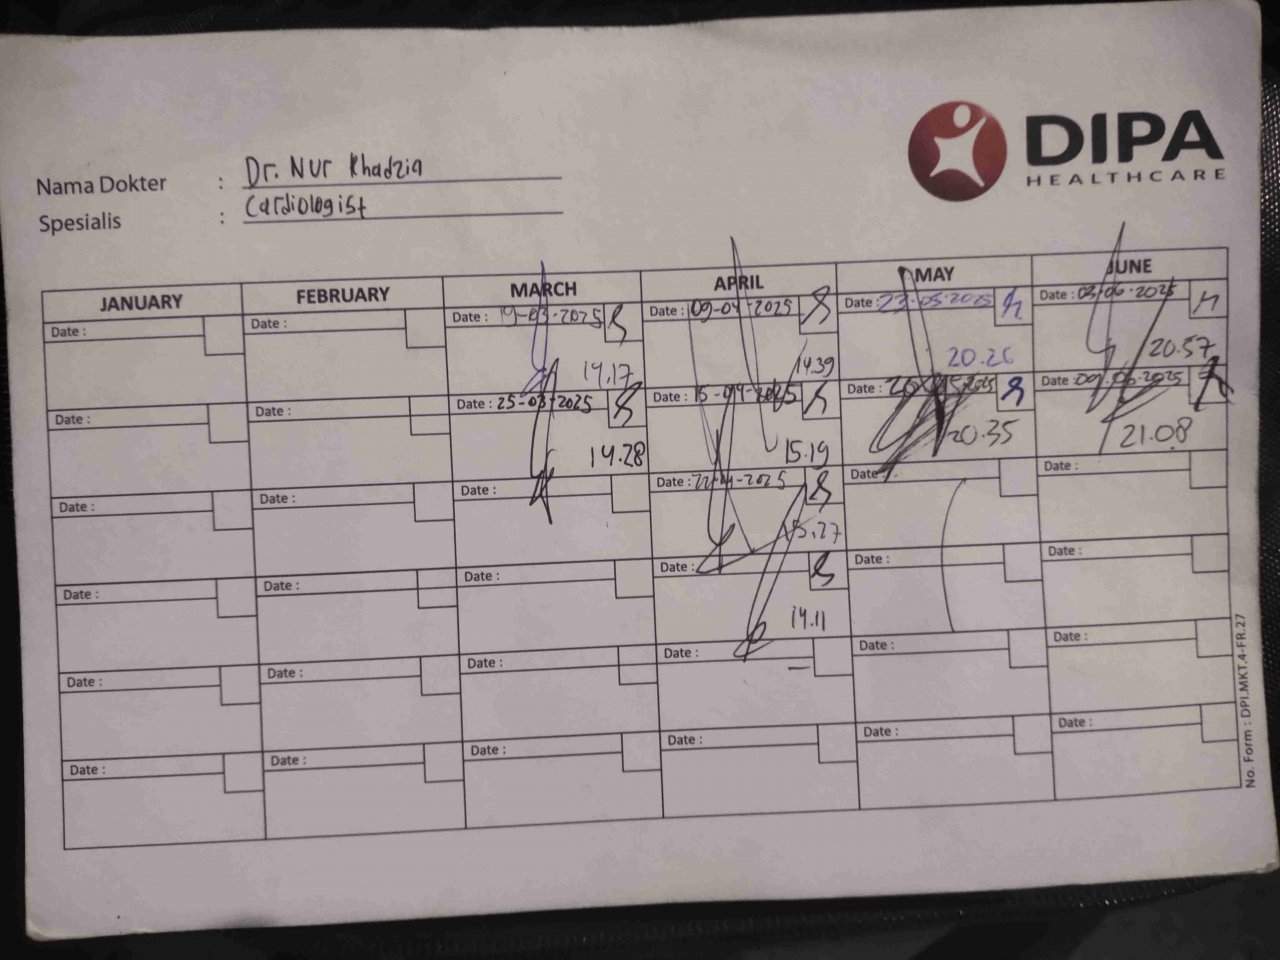 DIPA
HEALTHCARE
Nama Dokter : Dr. Nur Khadzia
Spesialis : Cardiologist
JANUARY FEBRUARY MARCH APRIL MAY JUNE
Date : Date : Date : 19-03-2025 Date : 09-04-2025 Date : 23-05-2025 Date : 03-06-2025
14.17 14.39 20.26 20.57
Date : Date : Date : 25-03-2025 Date : 15-04-2025 Date : Date : 09-06-2025
14.28 15.19 20.35 21.08
Date : Date : Date : Date : 22-04-2025 Date : Date :
15.27
Date : Date : Date : Date : Date : Date :
14.11
Date : Date : Date : Date : Date : Date :
Date : Date : Date : Date : Date : Date :
No. Form : DPI.MKT.4-FR.27